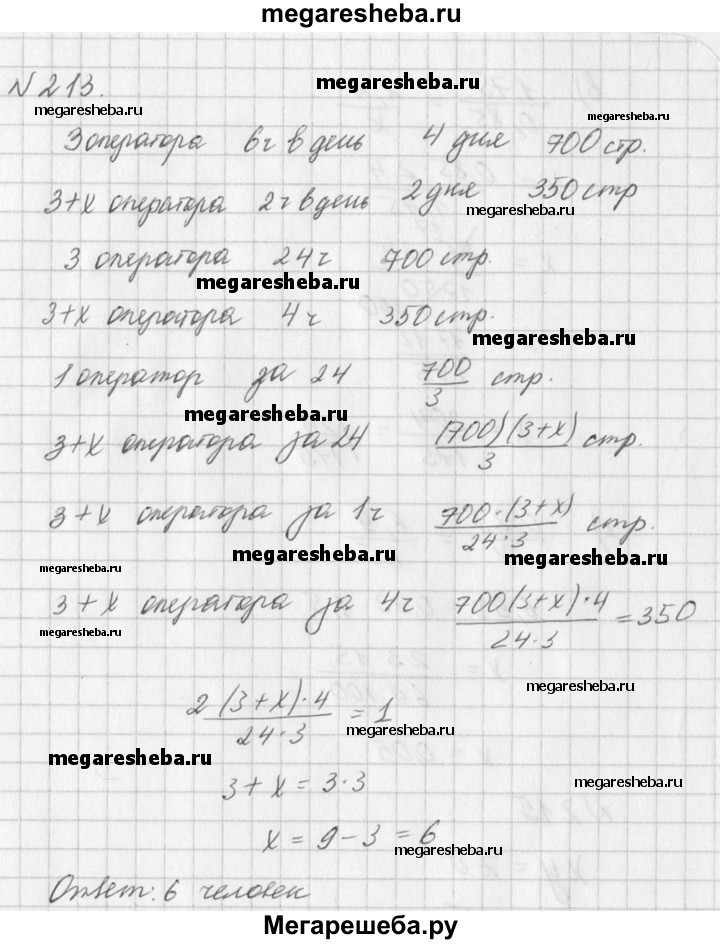 megaresheba.ru
N 213.
megaresheba.ru
megaresheba.ru
megaresheba.ru
3 оператора 6ч в день 4 дня 700 стр.
3+x оператора 2ч в день 2 дня 350 стр
megaresheba.ru
3 оператора 24ч 700 стр.
megaresheba.ru
3+x оператора 4ч 350 стр.
megaresheba.ru
1 оператор за 24 700/3 стр.
megaresheba.ru
3+x оператора за 24 (700)(3+x)/3 стр.
3+x оператора за 1ч 700·(3+x)/24·3 стр.
megaresheba.ru
megaresheba.ru
megaresheba.ru
3+x оператора за 4ч 700(3+x)·4/24·3 =350
megaresheba.ru
megaresheba.ru
2(3+x)·4/24·3 = 1
megaresheba.ru
megaresheba.ru
3+x = 3·3
megaresheba.ru
x = 9-3 = 6
megaresheba.ru
Ответ: 6 человек
Мегарешеба.ру